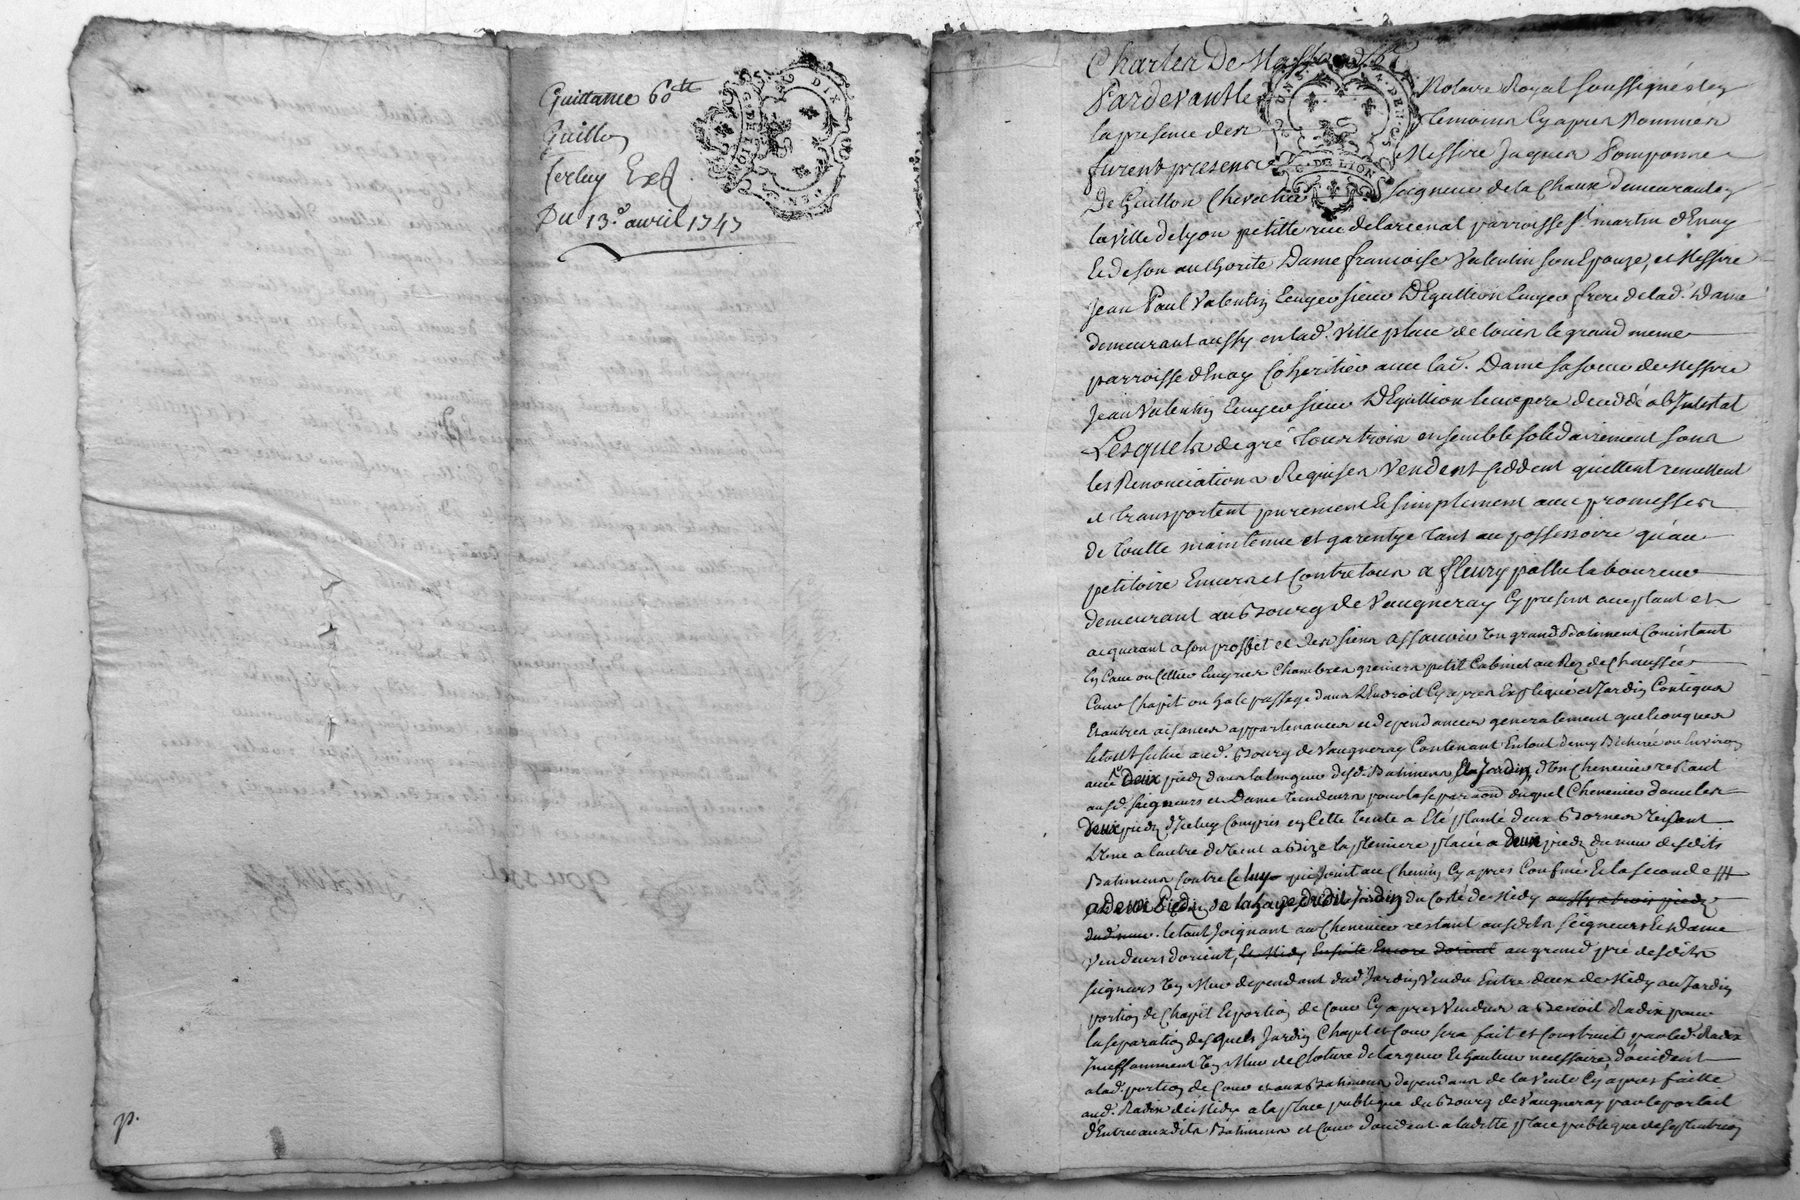 Quittance 60 tt
Guillon
Terluy Exp.
Du 13.e avril 1747
UN S. 4. DEN. G. DE LION
DIX DEN
GEN. DE LION
p.
Charles De
Pardevant le Notaire Royal soussigné et en
la presence des temoins cy apres Nommes
furent presence Messire Jacques Pomponne
De Guillon Chevalier seigneur de la Chaux demeurant en
la ville de lyon petitte rue de larcenal parroisse st. martin d'Enay
Et de son authorité Dame francoise Valentin son Epouze, et Messire
Jean Paul Valentin Ecuyer sieur D'Eguillion Ecuyer frere de lad. Dame
demeurant aussy en lad. Ville place de louis le grand meme
parroisse d'Enay Coheritier avec lad. Dame sa soeur de Messire
Jean Valentin Ecuyer sieur D'Eguillion leur pere decedé ab Intestat
Lesquels de gré tous trois ensemble solidairement sous
les Renonciations Requises Vendent ceddent quittent remettent
et transportent purement et simplement avec promesses
de toutte maintenue et garentye tant au possessoire qu'au
petitoire Envers et Contre tous a fleury pattu laboureur
demeurant au Bourg de Vaugneray Cy present acceptant et
acquerant a son proffit et des siens assavoir un grand Batiment Consistant
en Cave ou Cellier Ecuyries Chambres greniers petit Cabinet au Rez de Chaussée
Cour Chapit ou galé passage dans l'Endroit Cy apres Expliqué et Jardin Contigus
Et autres aisances appartenances et dependances generalement quelconques
le tout situé aud. Bourg de Vaugneray Contenant En tout demy Bicherée ou Environ
avec Deux pieds dans la longueur desd. Batimens Et Jardin, d'un Chenevier restant
ausd. seigneurs et Dame Vendeurs pour la separaon duquel Chenevier dans les
Deux pieds d'Iceluy Compris en Cette Vente a Eté planté deux Bornes Visent
L'une a l'autre de Vent a Bize la premiere placée a Deux pieds du mur desdits
Batimens Contre Celuy qui Joint au Chemin Cy apres Confiné Et la seconde
a Deux Pieds de la haye dudit Jardin du Coté de Midy aussy a trois pieds
dud. mur. le tout Joignant au Chenevier restant ausdits seigneurs Et Dame
Vendeurs d'orient, Et Midy Ensuite Encore d'orient au grand pré desdits
seigneurs un Mur dependant dud. Jardin Vendu Entre deux de Midy au Jardin
portion de Chapit Et portion de Cour Cy apres Vendus a Benoit Radix pour
la separation desquels Jardin Chapit et Cour sera fait et Construit par led. Radix
Incessamment un Mur de Cloture de largeur Et hauteur necessaire, d'occident
a lad. portion de Cour et aux Batimens dependans de la Vente Cy apres faitte
aud. Radix de Midy a la place publique du Bourg de Vaugneray par le portail
d'Entrée auxdits Batimens et Cour d'occident a laditte place publique de septentrion